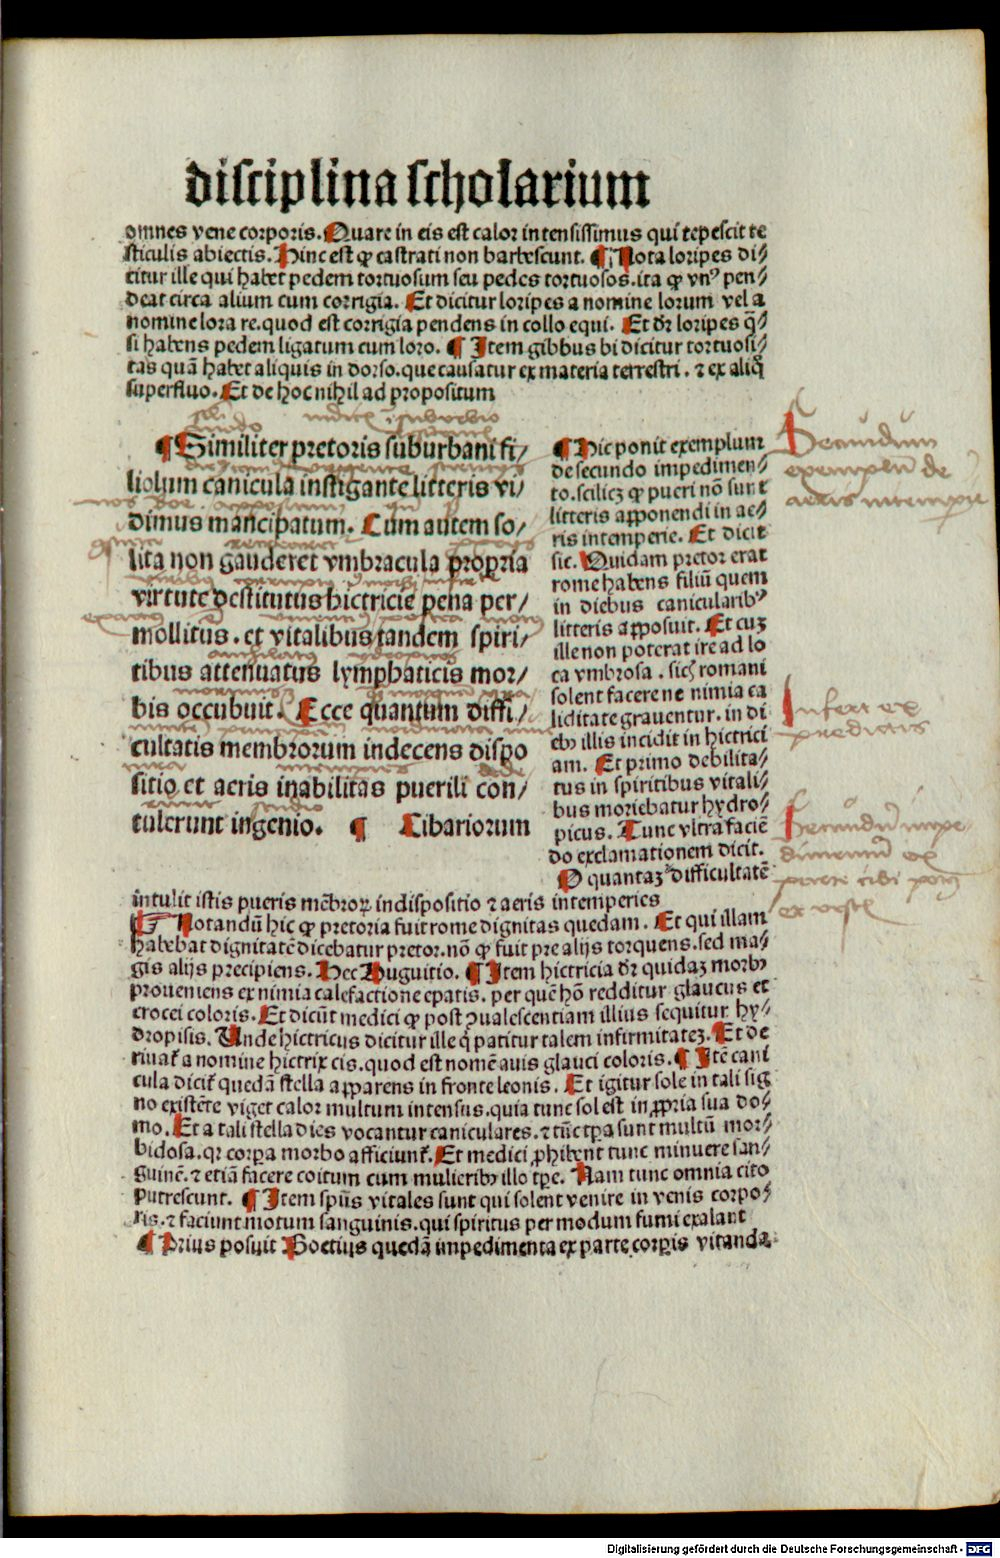 disciplina scholarium
omnes vene corporis. Quare in eis est calor intensissimus qui tepescit te
sticulis abiectis. Hinc est ꝙ castrati non barbescunt. ¶ Nota loripes di⸗
citur ille qui habet pedem tortuosum seu pedes tortuosos. ita ꝙ vnꝰ pen⸗
deat circa alium cum corrigia. Et dicitur loripes a nomine lorum vel a
nomine lora re. quod est corrigia pendens in collo equi. Et dr̄ loripes q̄⸗
si habens pedem ligatum cum loro. ¶ Item gibbus bi dicitur tortuosi⸗
tas quā habet aliquis in dorso. que causatur ex materia terrestri. ⁊ ex aliq̄
superfluo. Et de hoc nihil ad propositum
¶ Similiter pretoris suburbani fi⸗
liolum canicula instigante litteris vi⸗
dimus mancipatum. Cum autem so⸗
lita non gauderet vmbracula propria
virtute destitutus hictricie pena per⸗
mollitus. et vitalibus tandem spiri⸗
tibus attenuatus lymphaticis mor⸗
bis occubuit. Ecce quantum diffi⸗
cultatis membrorum indecens dispo
sitio et aeris inabilitas puerili con⸗
tulerunt ingenio. ¶ Cibariorum
¶ Hic ponit exemplum
de secundo impedimen⸗
to. scilicꝫ ꝙ pueri nō sunt
litteris apponendi in ae⸗
ris intemperie. Et dicit
sic. Quidam pretor erat
rome habens filiū quem
in diebus canicularibꝰ
litteris apposuit. Et cuꝫ
ille non poterat ire ad lo
ca vmbrosa. sic romani
solent facere ne nimia ca
liditate grauentur. in di
ebꝰ illis incidit in hictrici
am. Et primo debilita⸗
tus in spiritibus vitali⸗
bus moriebatur hydro⸗
picus. Tunc vltra faciē
do exclamationem dicit.
O quantaꝫ difficultatē
intulit istis pueris mēbroꝝ indispositio ⁊ aeris intemperies
¶ Notandū hic ꝙ pretoria fuit rome dignitas quedam. Et qui illam
habebat dignitatē dicebatur pretor. nō ꝙ fuit pre alijs torquens. sed ma⸗
gis alijs precipiens. Hec Huguitio. ¶ Item hictricia dr̄ quidaꝫ morbꝰ
proueniens ex nimia calefactione epatis. per quē hō redditur glaucus et
crocei coloris. Et dicūt medici ꝙ post ꝯualescentiam illius sequitur hy⸗
dropisis. Unde hictricus dicitur ille q̇ patitur talem infirmitateꝫ. Et de
riuat̄ a nomine hictrix cis. quod est nomē auis glauci coloris. ¶ Itē cani
cula dicit̄ quedā stella apparens in fronte leonis. Et igitur sole in tali sig
no existēte viget calor multum intensus. quia tunc sol est in ꝓpria sua do⸗
mo. Et a tali stella dies vocantur caniculares. ⁊ tūc tꝑa sunt multū mor⸗
bidosa. qꝛ corꝑa morbo afficiunt̄. Et medici ꝓhibent tunc minuere san⸗
guinē. ⁊ etiā facere coitum cum mulieribꝰ illo tꝑe. Nam tunc omnia cito
putrescunt. ¶ Item spūs vitales sunt qui solent venire in venis corpo⸗
ris. ⁊ faciunt motum sanguinis. qui spiritus per modum fumi exalant
¶ Prius posuit Boetius quedā impedimenta ex parte corꝑis vitanda.
Secundum
exemplū de
aeris intemperie
Infert ex
predictis
Secundū impe
dimentū ex
parte cibi potꝰ
et vestis
Digitalisierung gefördert durch die Deutsche Forschungsgemeinschaft - DFG